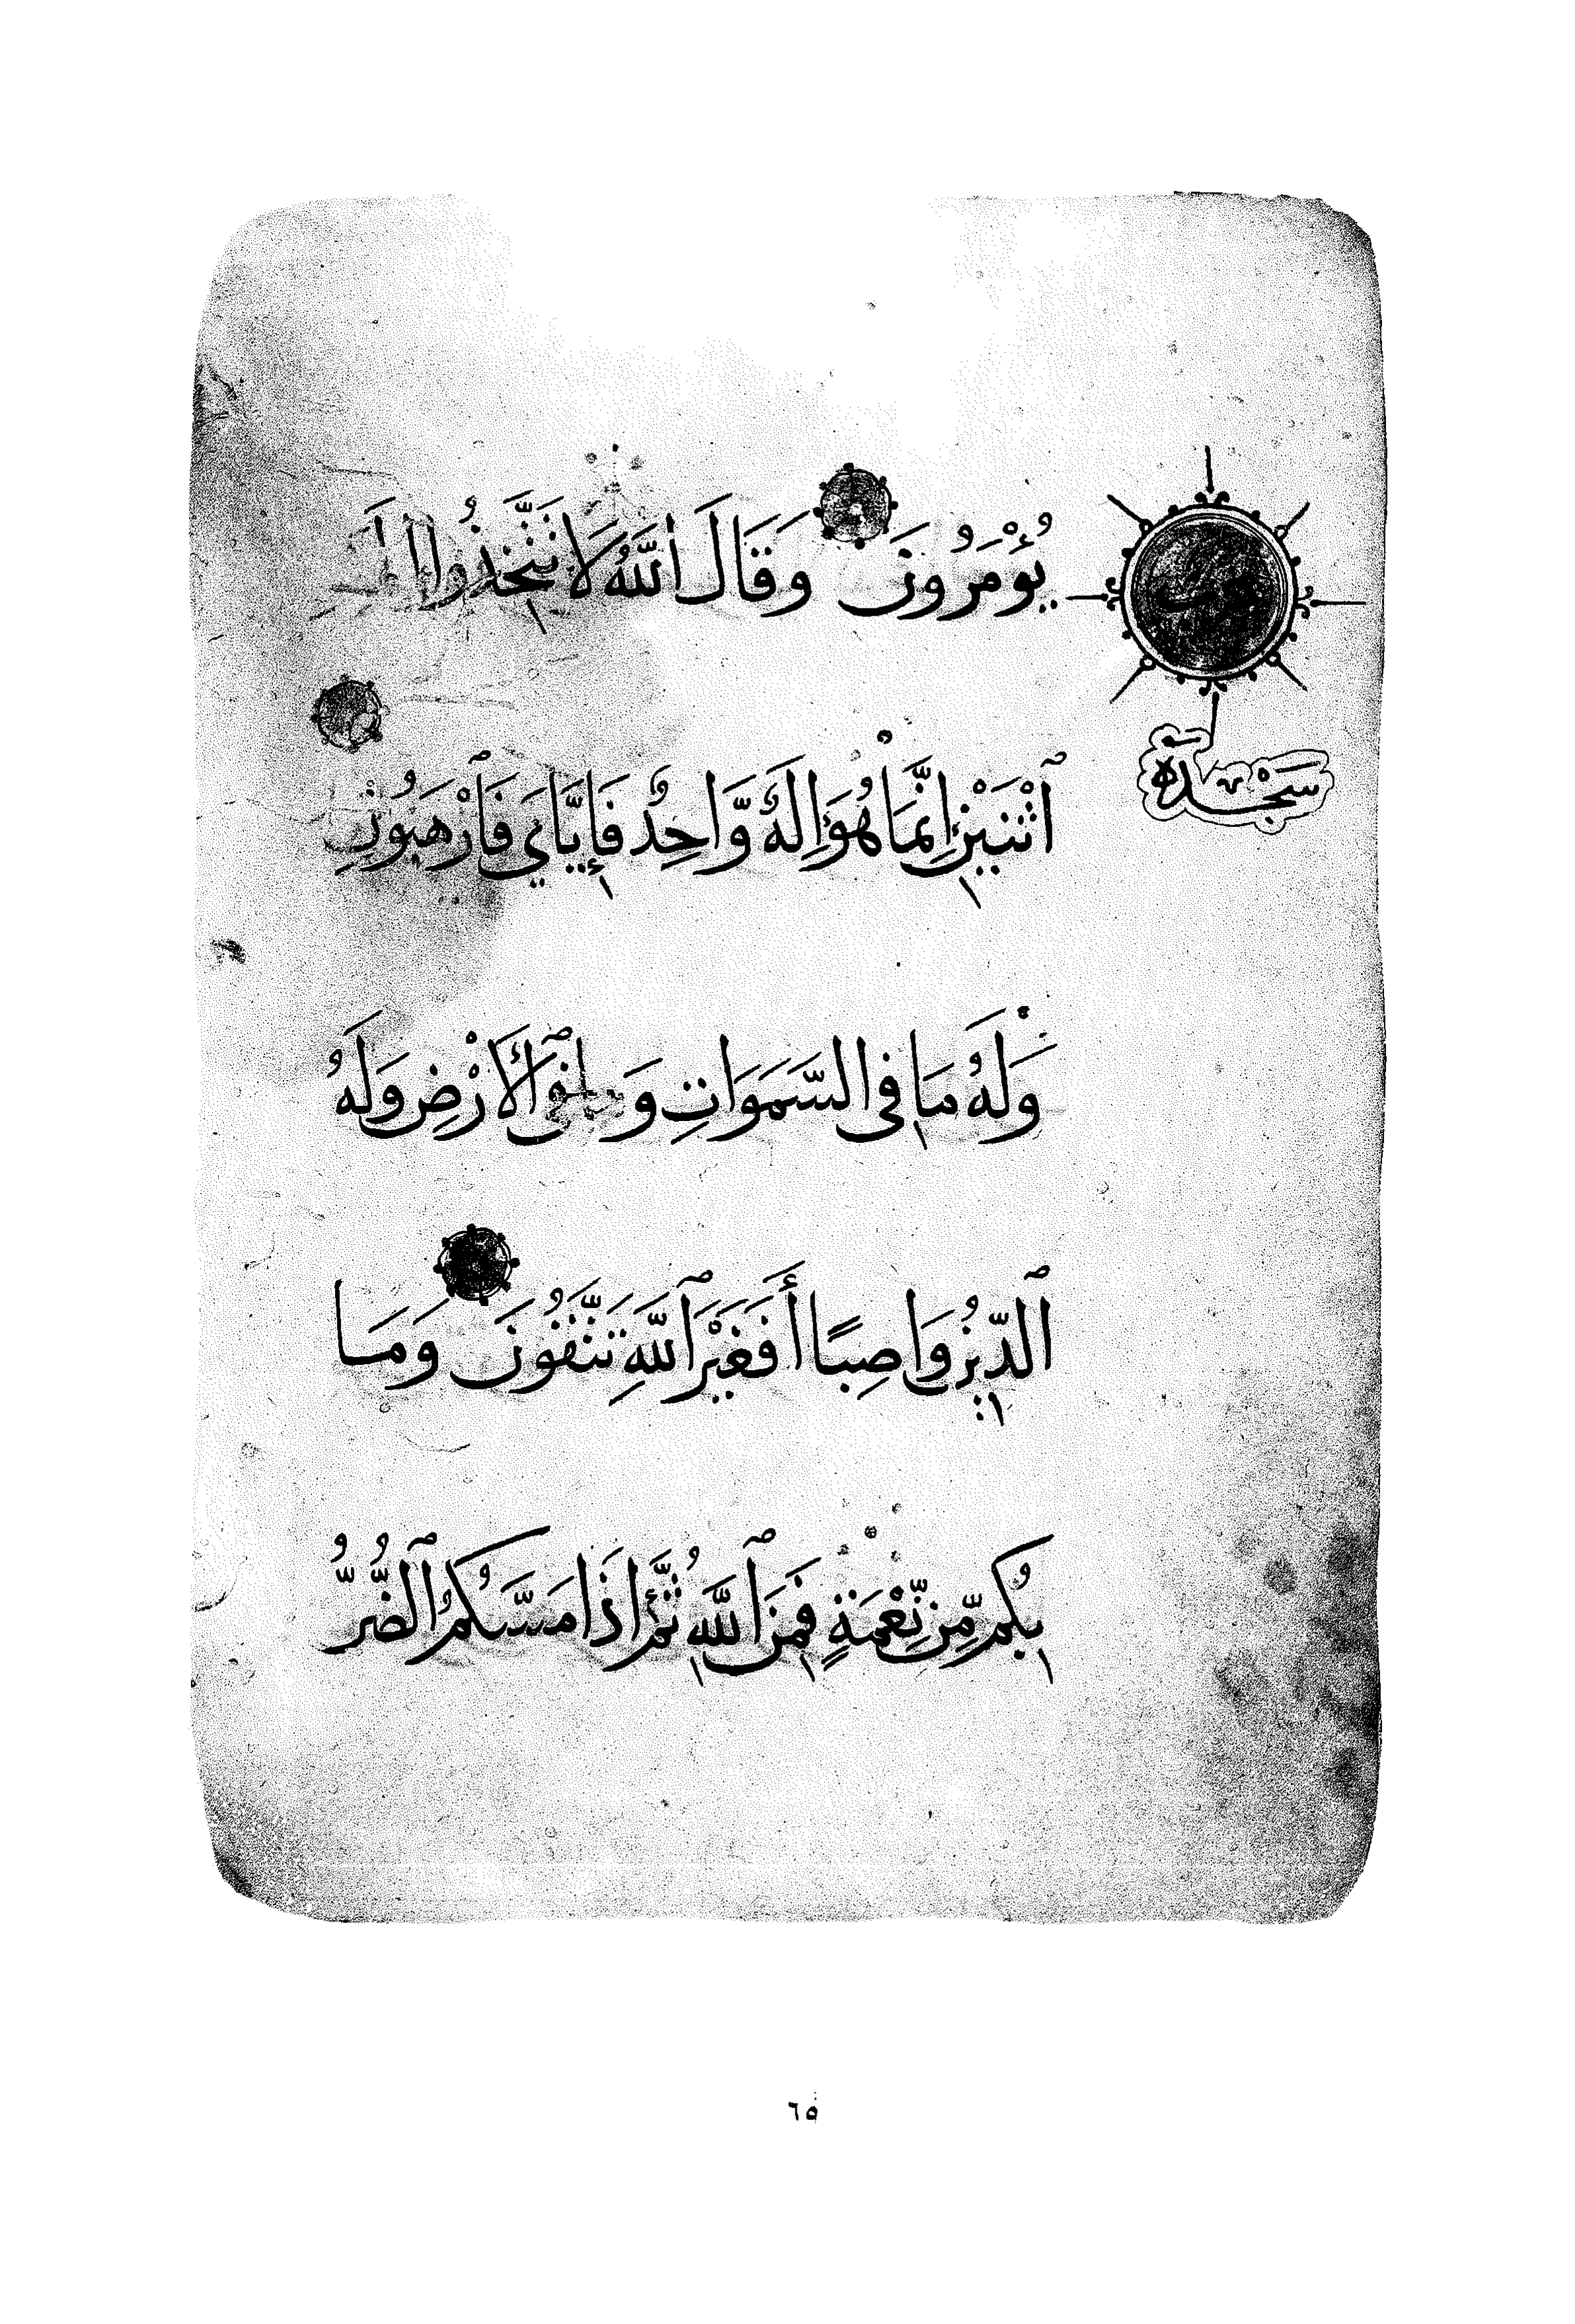 يُؤْمَرُونَ وَقَالَ اللَّهُ لَا تَتَّخِذُوا
ٱثْنَيْنِ إِنَّمَا هُوَ إِلَهٌ وَّاحِدٌ فَإِيَّايَ فَٱرْهَبُونِ
سَجْدَة
وَلَهُ مَا فِى السَّمَوَاتِ وَٱلْأَرْضِ وَلَهُ
ٱلدِّينُ وَاصِبًا أَفَغَيْرَ ٱللَّهِ تَتَّقُونَ وَمَا
بِكُم مِّن نِّعْمَةٍ فَمِنَ ٱللَّهِ ثُمَّ إِذَا مَسَّكُمُ ٱلضُّرُّ
٦٥